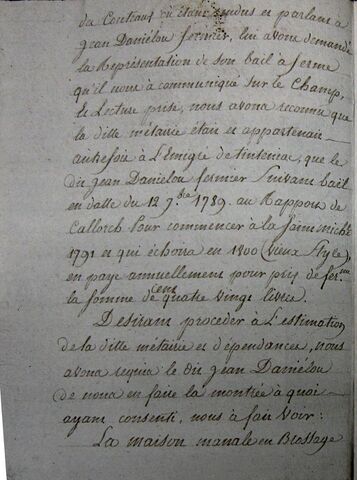 du Contrant où étant rendus et parlant à
jean Daniélou fermier, lui avons demandé
la Représentation de son bail à ferme
qu'il nous a communiqué sur le Champ,
et Lecture prise, nous avons reconnu que
la ditte métairie étant et appartenait
autrefois à L'Emigré de tinteniac, que le
dit jean Daniélou fermier suivant bail
en datte du 12 7bre 1789. au Rapport de
Callorch Pour commencer à la saint michel
1791 et qui échoira en 1800 (vieux style)
en paye annuellement pour prix de ferme
la somme de cent quatre vingt livres.
Desirant procéder à L'estimation
de la ditte métairie et dépendances, nous
avons requis le dit jean Daniélou
de nous en faire la montrée à quoi
ayant consenti, nous a fait voir:
La maison manale en Brossage